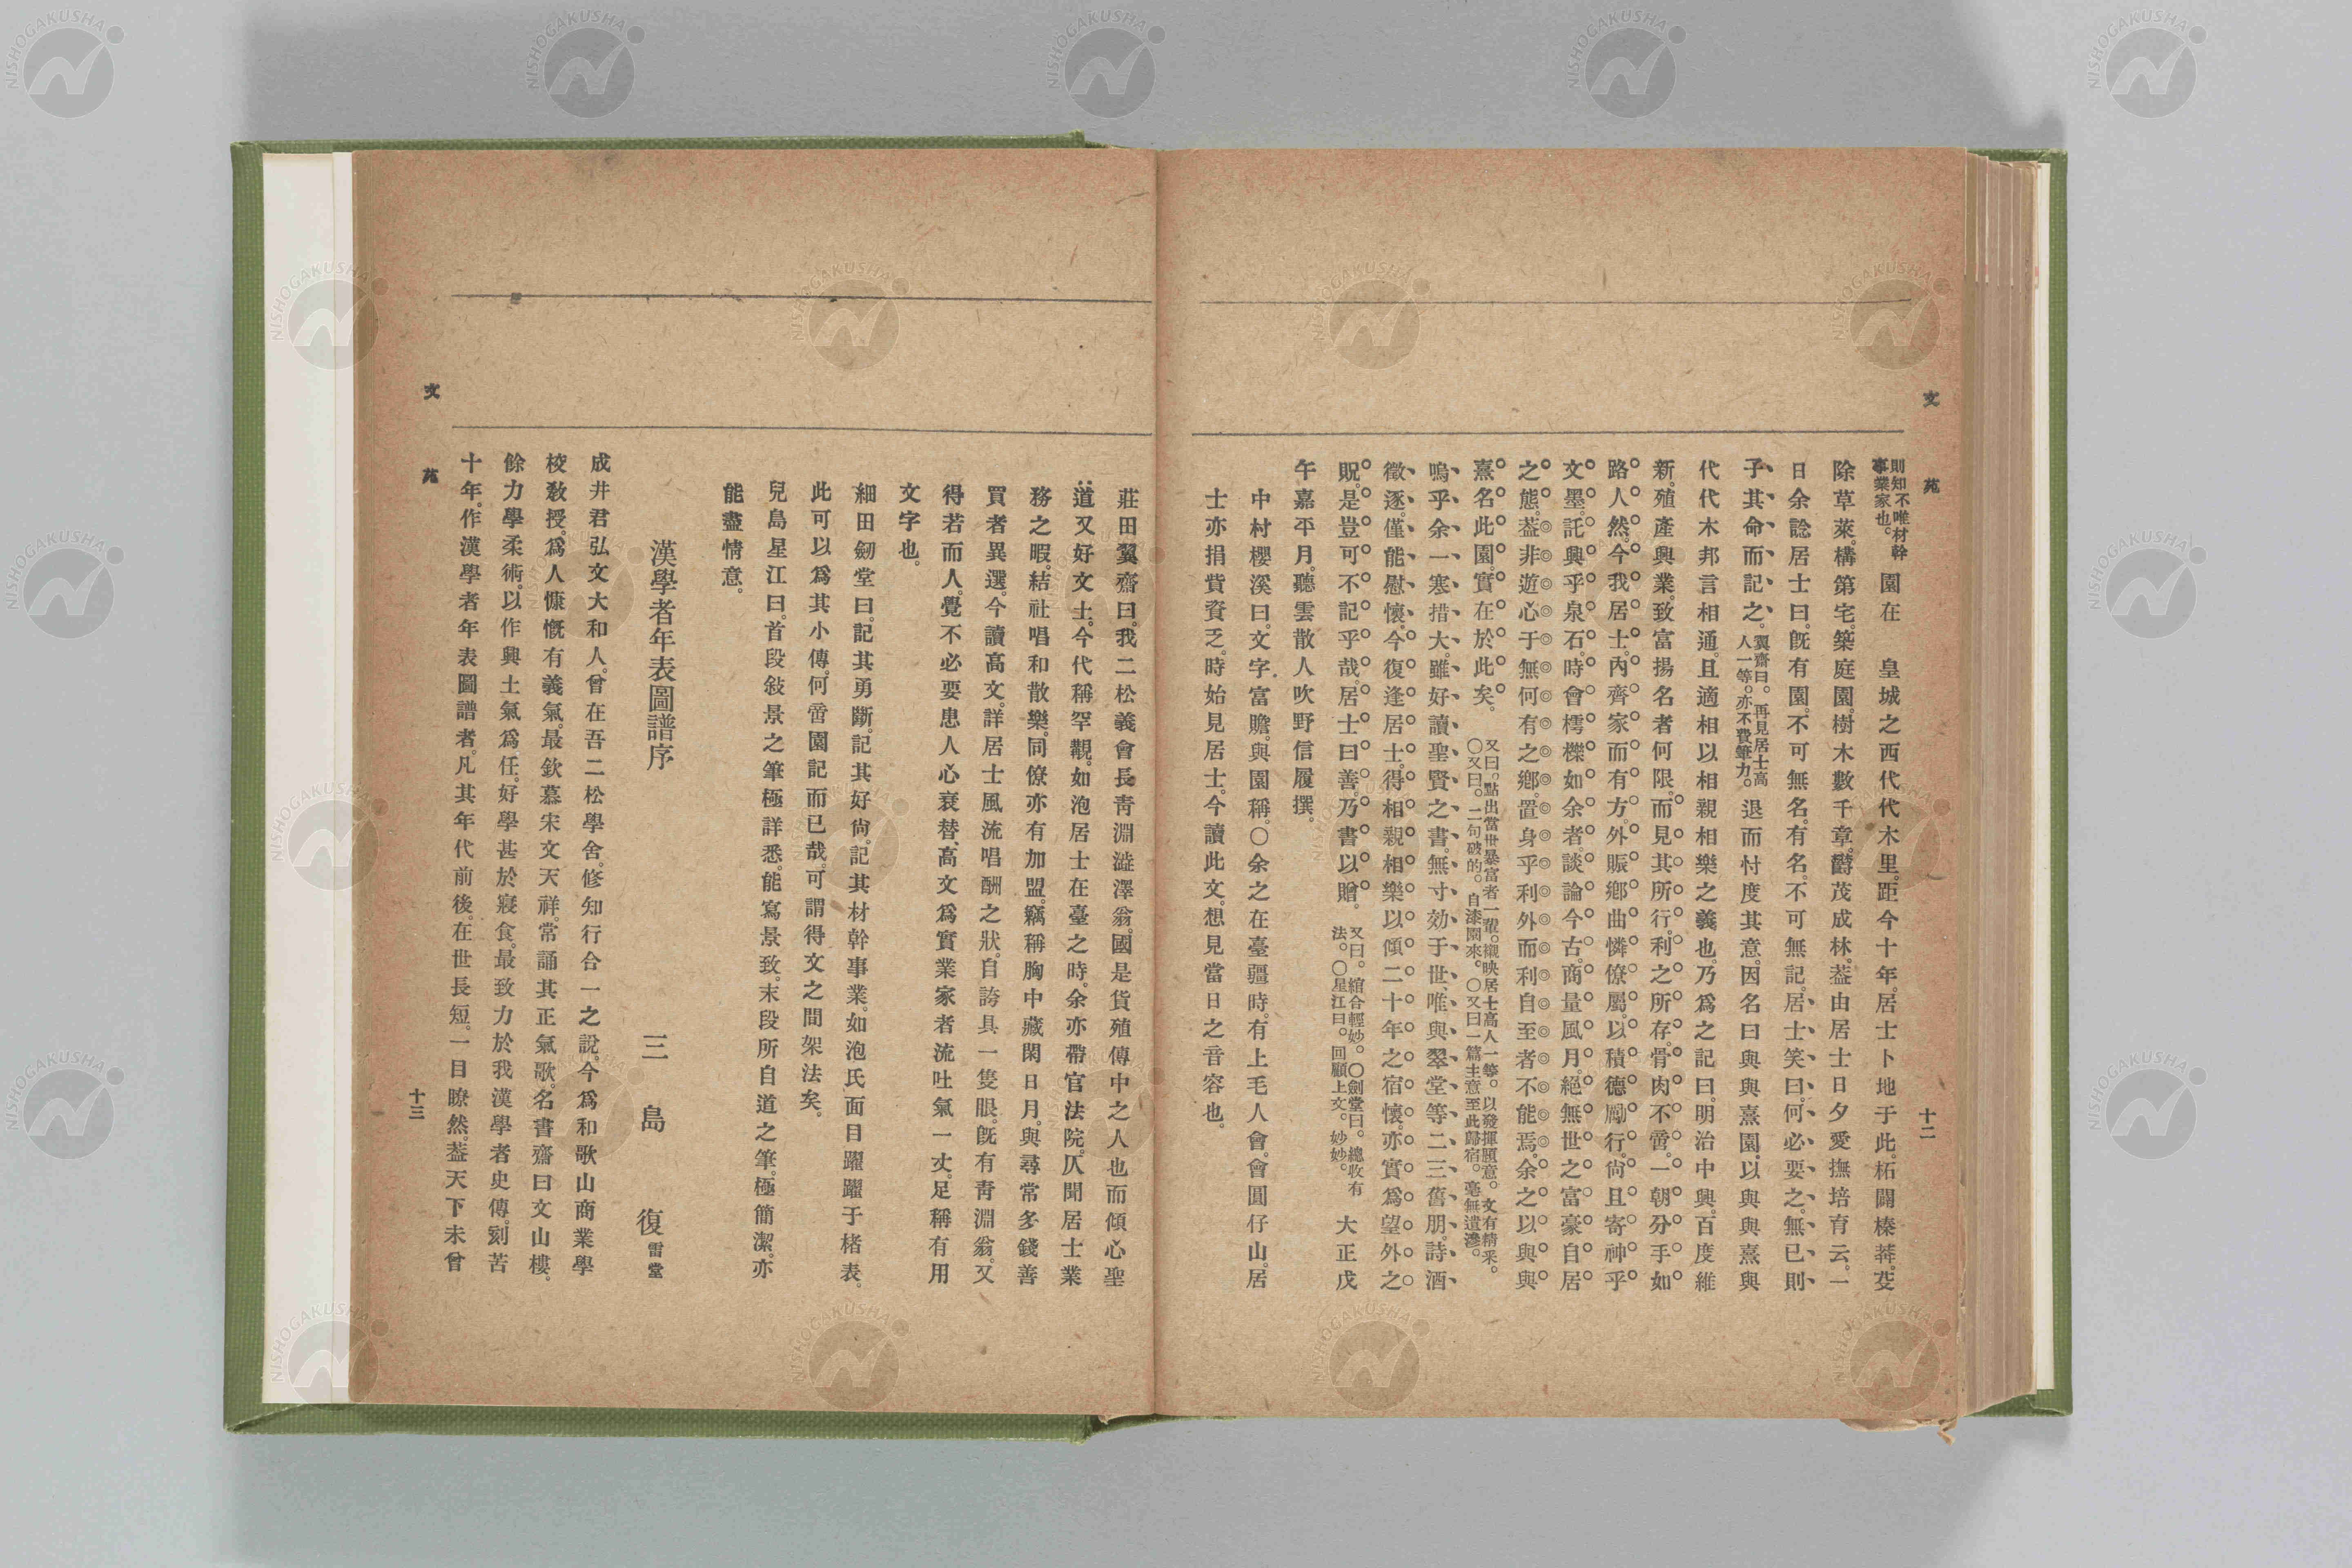 文苑
十二
則知不唯材幹
事業家也。
園在　皇城之西代代木里。距今十年。居士卜地于此。柘闢榛莽。芟
除草萊。構第宅。築庭園。樹木數千章。欝茂成林。葢由居士日夕愛撫培育云。一
日余諗居士曰。旣有園。不可無名。有名。不可無記。居士笑曰。何必要之。無已則
子其命而記之。
翼齋曰。再見居士高
人一等。亦不費筆力。
退而忖度其意。因名曰與與熹園。以與與熹與
代代木邦言相通。且適相以相親相樂之義也。乃爲之記曰。明治中興。百度維
新。殖產興業。致富揚名者何限。而見其所行。利之所存。骨肉不啻。一朝分手如
路人然。今我居士。內齊家而有方。外賑鄉曲憐僚屬。以積德勵行。尙且寄神乎
文墨。託興乎泉石。時會樗櫟如余者。談論今古。商量風月。絕無世之富豪自居
之態。葢非遊心于無何有之鄕。置身乎利外而利自至者不能焉。余之以與與
熹名此園。實在於此矣。
又曰。點出當世暴富者一輩。襯映居士高人一等。以發揮題意。文有精采。
〇又曰。二句破的。自漆園來。〇又曰一篇主意至此歸宿。毫無遺滲。
嗚乎余一寒措大。雖好讀聖賢之書。無寸効于世、唯與翠堂等二三舊朋。詩酒
徵逐。僅能慰懷。今復逢居士。得相親相樂以傾二十年之宿懷。亦實爲望外之
貺。是豈可不記乎哉。居士曰善。乃書以贈。
又曰。綰合輕妙。〇劍堂曰。總收有
法。〇星江曰。回顧上文。妙妙。
大正戊
午嘉平月。聽雲散人吹野信履撰。
中村櫻溪曰。文字富贍。與園稱。〇余之在臺疆時。有上毛人會。會圓仔山。居
士亦捐貲資乏。時始見居士。今讀此文。想見當日之音容也。
莊田翼齋曰。我二松義會長靑淵澁澤翁。國是貨殖傳中之人也而傾心聖
道又好文士。今代稱罕觀。如泡居士在臺之時。余亦帶官法院。仄聞居士業
務之暇。結社唱和散樂。同僚亦有加盟。竊稱胸中藏閑日月。與尋常多錢善
買者異選。今讀高文。詳居士風流唱酬之狀。自誇具一隻眼。旣有靑淵翁。又
得若而人。覺不必要患人心衰替、高文爲實業家者流吐氣一丈。足稱有用
文字也。
細田劒堂曰。記其勇斷。記其好尙。記其材幹事業。如泡氏面目躍躍于楮表。
此可以爲其小傳。何啻園記而已哉。可謂得文之間架法矣。
兒島星江曰。首段敍景之筆極詳悉。能寫景致。末段所自道之筆。極簡潔。亦
能盡情意。
漢學者年表圖譜序　三島　復雷堂
成井君弘文大和人。曾在吾二松學舍。修知行合一之說。今爲和歌山商業學
校敎授。爲人慷慨有義氣。最欽慕宋文天祥。常誦其正氣歌。名書齋曰文山樓。
餘力學柔術。以作興士氣爲任。好學甚於寢食。最致力於我漢學者史傳。刻苦
十年。作漢學者年表圖譜者。凡其年代前後。在世長短。一目瞭然。葢天下未曾
文苑
十三
NISHOGAKUSHA